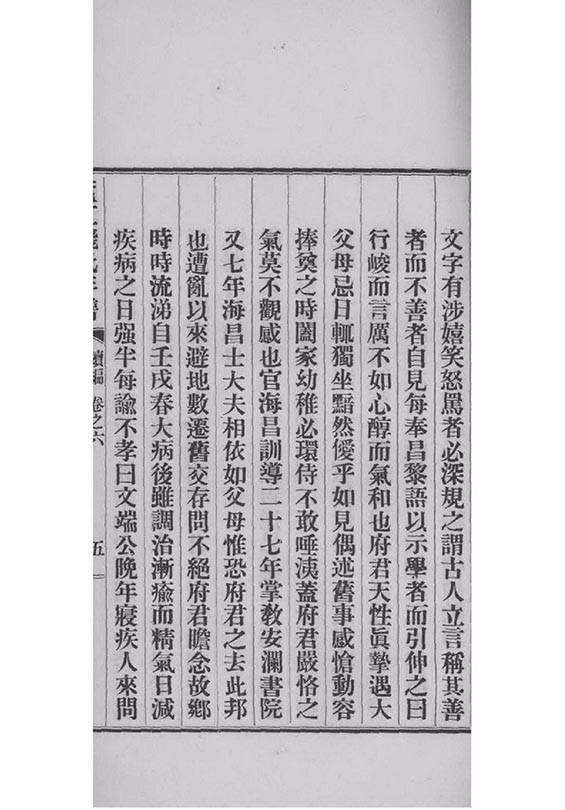 文字有涉嬉笑怒罵者必深規之謂古人立言稱其善
者而不善者自見每奉昌黎語以示學者而引伸之曰
行峻而言厲不如心醇而氣和也府君天性眞摯遇大
父母忌日輒獨坐黯然僾乎如見偶述舊事感愴動容
捧奠之時闔家幼稚必環侍不敢唾洟蓋府君嚴恪之
氣莫不觀感也官海昌訓導二十七年掌教安瀾書院
又七年海昌士大夫相依如父母惟恐府君之去此邦
也遭亂以來避地數遷舊交存問不絕府君瞻念故鄉
時時流涕自壬戌春大病後雖調治漸瘉而精氣日減
疾病之日强半每諭不孝曰文端公晚年寢疾人來問
續編 卷之六
五